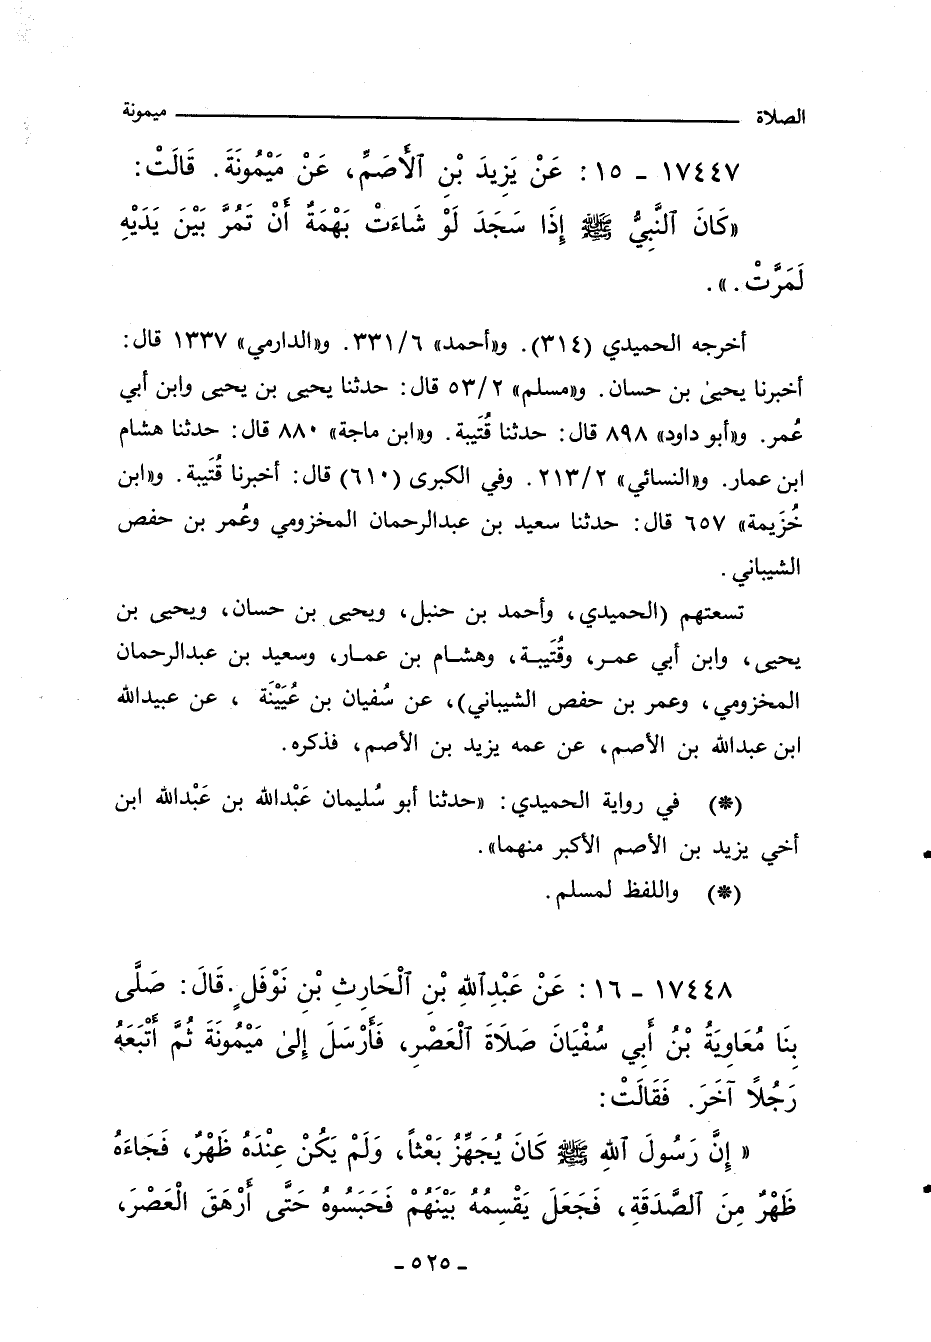 الصلاة ميمونة
١٧٤٤٧ - ١٥ : عَنْ يَزِيدَ بْنِ ٱلْأَصَمِّ، عَنْ مَيْمُونَةَ. قَالَتْ:
«كَانَ ٱلنَّبِيُّ ﷺ إِذَا سَجَدَ لَوْ شَاءَتْ بَهْمَةٌ أَنْ تَمُرَّ بَيْنَ يَدَيْهِ
لَمَرَّتْ.».
أخرجه الحميدي (٣١٤). و«أحمد» ٣٣١/٦. و«الدارمي» ١٣٣٧ قال:
أخبرنا يحيىٰ بن حسان. و«مسلم» ٥٣/٢ قال: حدثنا يحيى بن يحيى وابن أبي
عُمر. و«أبو داود» ٨٩٨ قال: حدثنا قُتَيبة. و«ابن ماجة» ٨٨٠ قال: حدثنا هشام
ابن عمار. و«النسائي» ٢١٣/٢. وفي الكبرى (٦١٠) قال: أخبرنا قُتَيبة. و«ابن
خُزَيمة» ٦٥٧ قال: حدثنا سعيد بن عبدالرحمان المخزومي وعُمر بن حفص
الشيباني.
تسعتهم (الحميدي، وأحمد بن حنبل، ويحيى بن حسان، ويحيى بن
يحيى، وابن أبي عمر، وقُتَيبة، وهشام بن عمار، وسعيد بن عبدالرحمان
المخزومي، وعمر بن حفص الشيباني)، عن سُفيان بن عُيَيْنَة ، عن عبيدالله
ابن عبدالله بن الأصم، عن عمه يزيد بن الأصم، فذكره.
(*) في رواية الحميدي: «حدثنا أبو سُليمان عَبْدالله بن عَبْدالله ابن
أخي يزيد بن الأصم الأكبر منهما».
(*) واللفظ لمسلم.
١٧٤٤٨ - ١٦ : عَنْ عَبْدِٱللهِ بْنِ ٱلْحَارِثِ بْنِ نَوْفَلٍ. قَالَ: صَلَّى
بِنَا مُعَاوِيَةُ بْنُ أَبِي سُفْيَانَ صَلَاةَ ٱلْعَصْرِ، فَأَرْسَلَ إِلىٰ مَيْمُونَةَ ثُمَّ أَتْبَعَهُ
رَجُلاً آخَرَ. فَقَالَتْ:
« إِنَّ رَسُولَ ٱللهِ ﷺ كَانَ يُجَهِّزُ بَعْثاً، وَلَمْ يَكُنْ عِنْدَهُ ظَهْرٌ، فَجَاءَهُ
ظَهْرٌ مِنَ ٱلصَّدَقَةِ، فَجَعَلَ يَقْسِمُهُ بَيْنَهُمْ فَحَبَسُوهُ حَتَّى أَرْهَقَ الْعَصْرَ،
- ٥٢٥ -